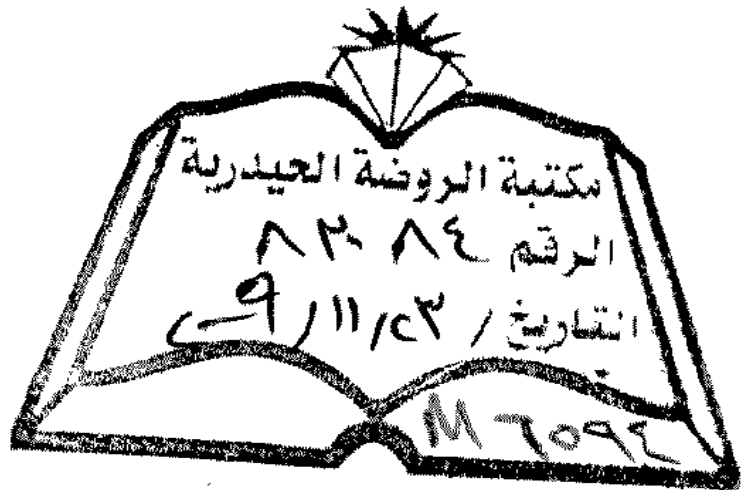 مكتبة الروضة الحيدرية
الرقم ٨٣٠٨٤
التاريخ / ٢٣ / ١١ / ٩
M ٦٥٩٤